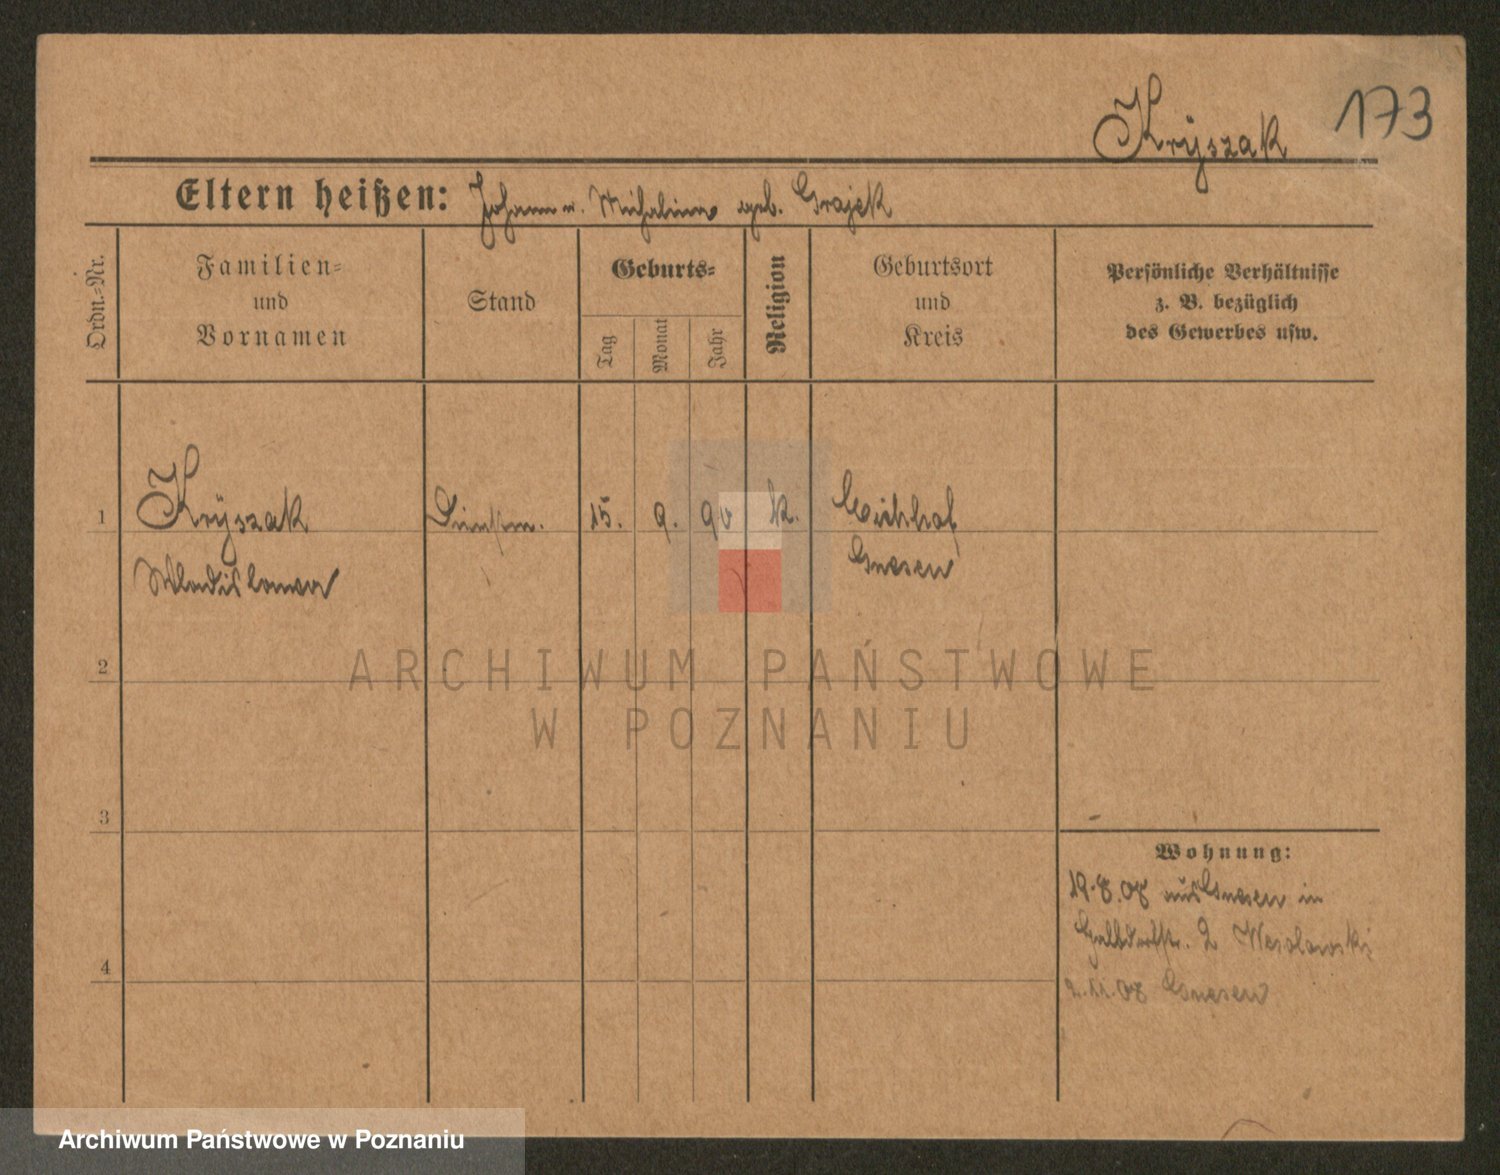 Kryszak 173
Eltern heißen: Johann u. Michalina geb. Grajek
Ordn.-Nr.
Familien-
und
Vornamen
Stand
Geburts-
Tag
Monat
Jahr
Religion
Geburtsort
und
Kreis
Persönliche Verhältnisse
z. B. bezüglich
des Gewerbes usw.
1 Kryszak 15. 9. 90 k.
Wladislawa Gnesen
2
ARCHIWUM PAŃSTWOWE
W POZNANIU
3
Wohnung:
19.8.08 aus Gnesen in
2 Wesolowski
4
2.11.08 Gnesen
Archiwum Państwowe w Poznaniu